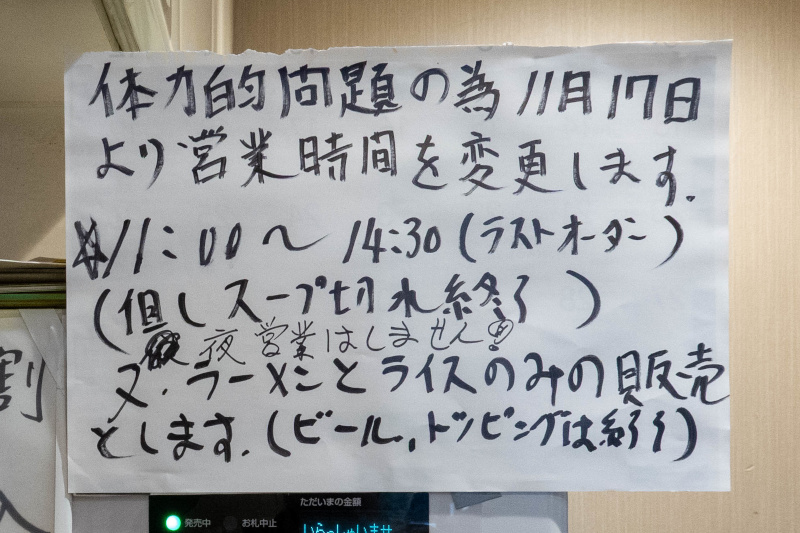 体力的問題の為11月17日
より営業時間を変更します.
11:00〜14:30(ラストオーダー)
(但しスープ切れ終了)
夜営業はしません
又、ラーメンとライスのみの販売
とします.(ビール,トッピングは終了)
割
ただいまの金額
発売中 お札中止
いらっしゃいませ